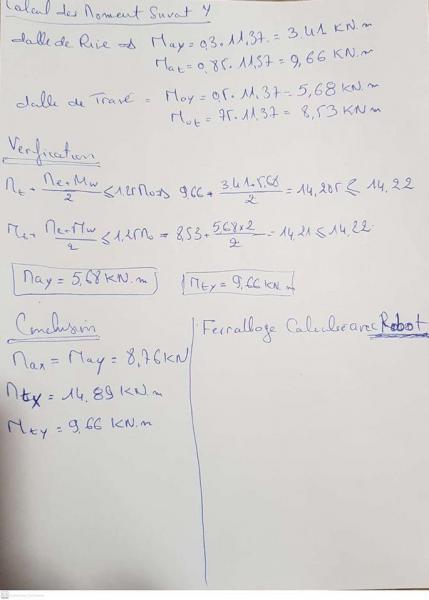 Calcul des Moment Suvat Y
dalle de Rive => May = 0,3 . 11,37 = 3,41 KN.m
Mat = 0,85 . 11,37 = 9,66 KN.m
dalle de Travé = Moy = 0,5 . 11,37 = 5,68 KN.m
Mot = 75 . 11,37 = 8,53 KN.m
Verfication
Mt + Me+Mw/2 ≤ 1,25 M0 => 9,66 + 3.41+5.68/2 = 14,205 ≤ 14,22
Mt + Me+Mw/2 ≤ 1,25 M0 = 8,53 + 5,68×2/2 = 14,21 ≤ 14,22
May = 5,68 KN.m Mty = 9,66 KN.m
Conclusion
Max = May = 8,76 KN
Mtx = 14,89 KN.m
Mty = 9,66 KN.m
Ferrallage Calculse avec Robot